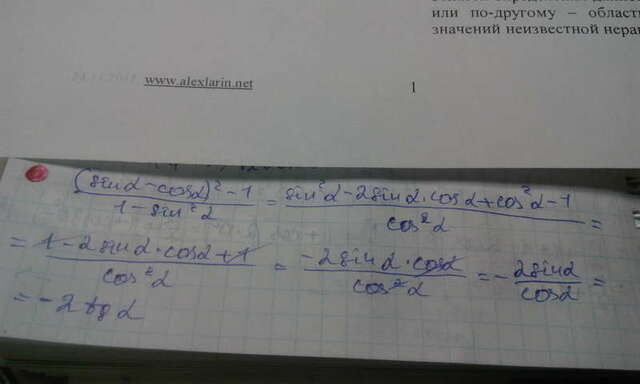 или по-другому – област
значений неизвестной нерав
www.alexlarin.net
1
(sinα - cosα)² - 1 / 1 - sin²α = sin²α - 2sinα·cosα + cos²α - 1 / cos²α =
= 1 - 2sinα·cosα + 1 / cos²α = -2sinα·cosα / cos²α = - 2sinα / cosα =
= -2tgα